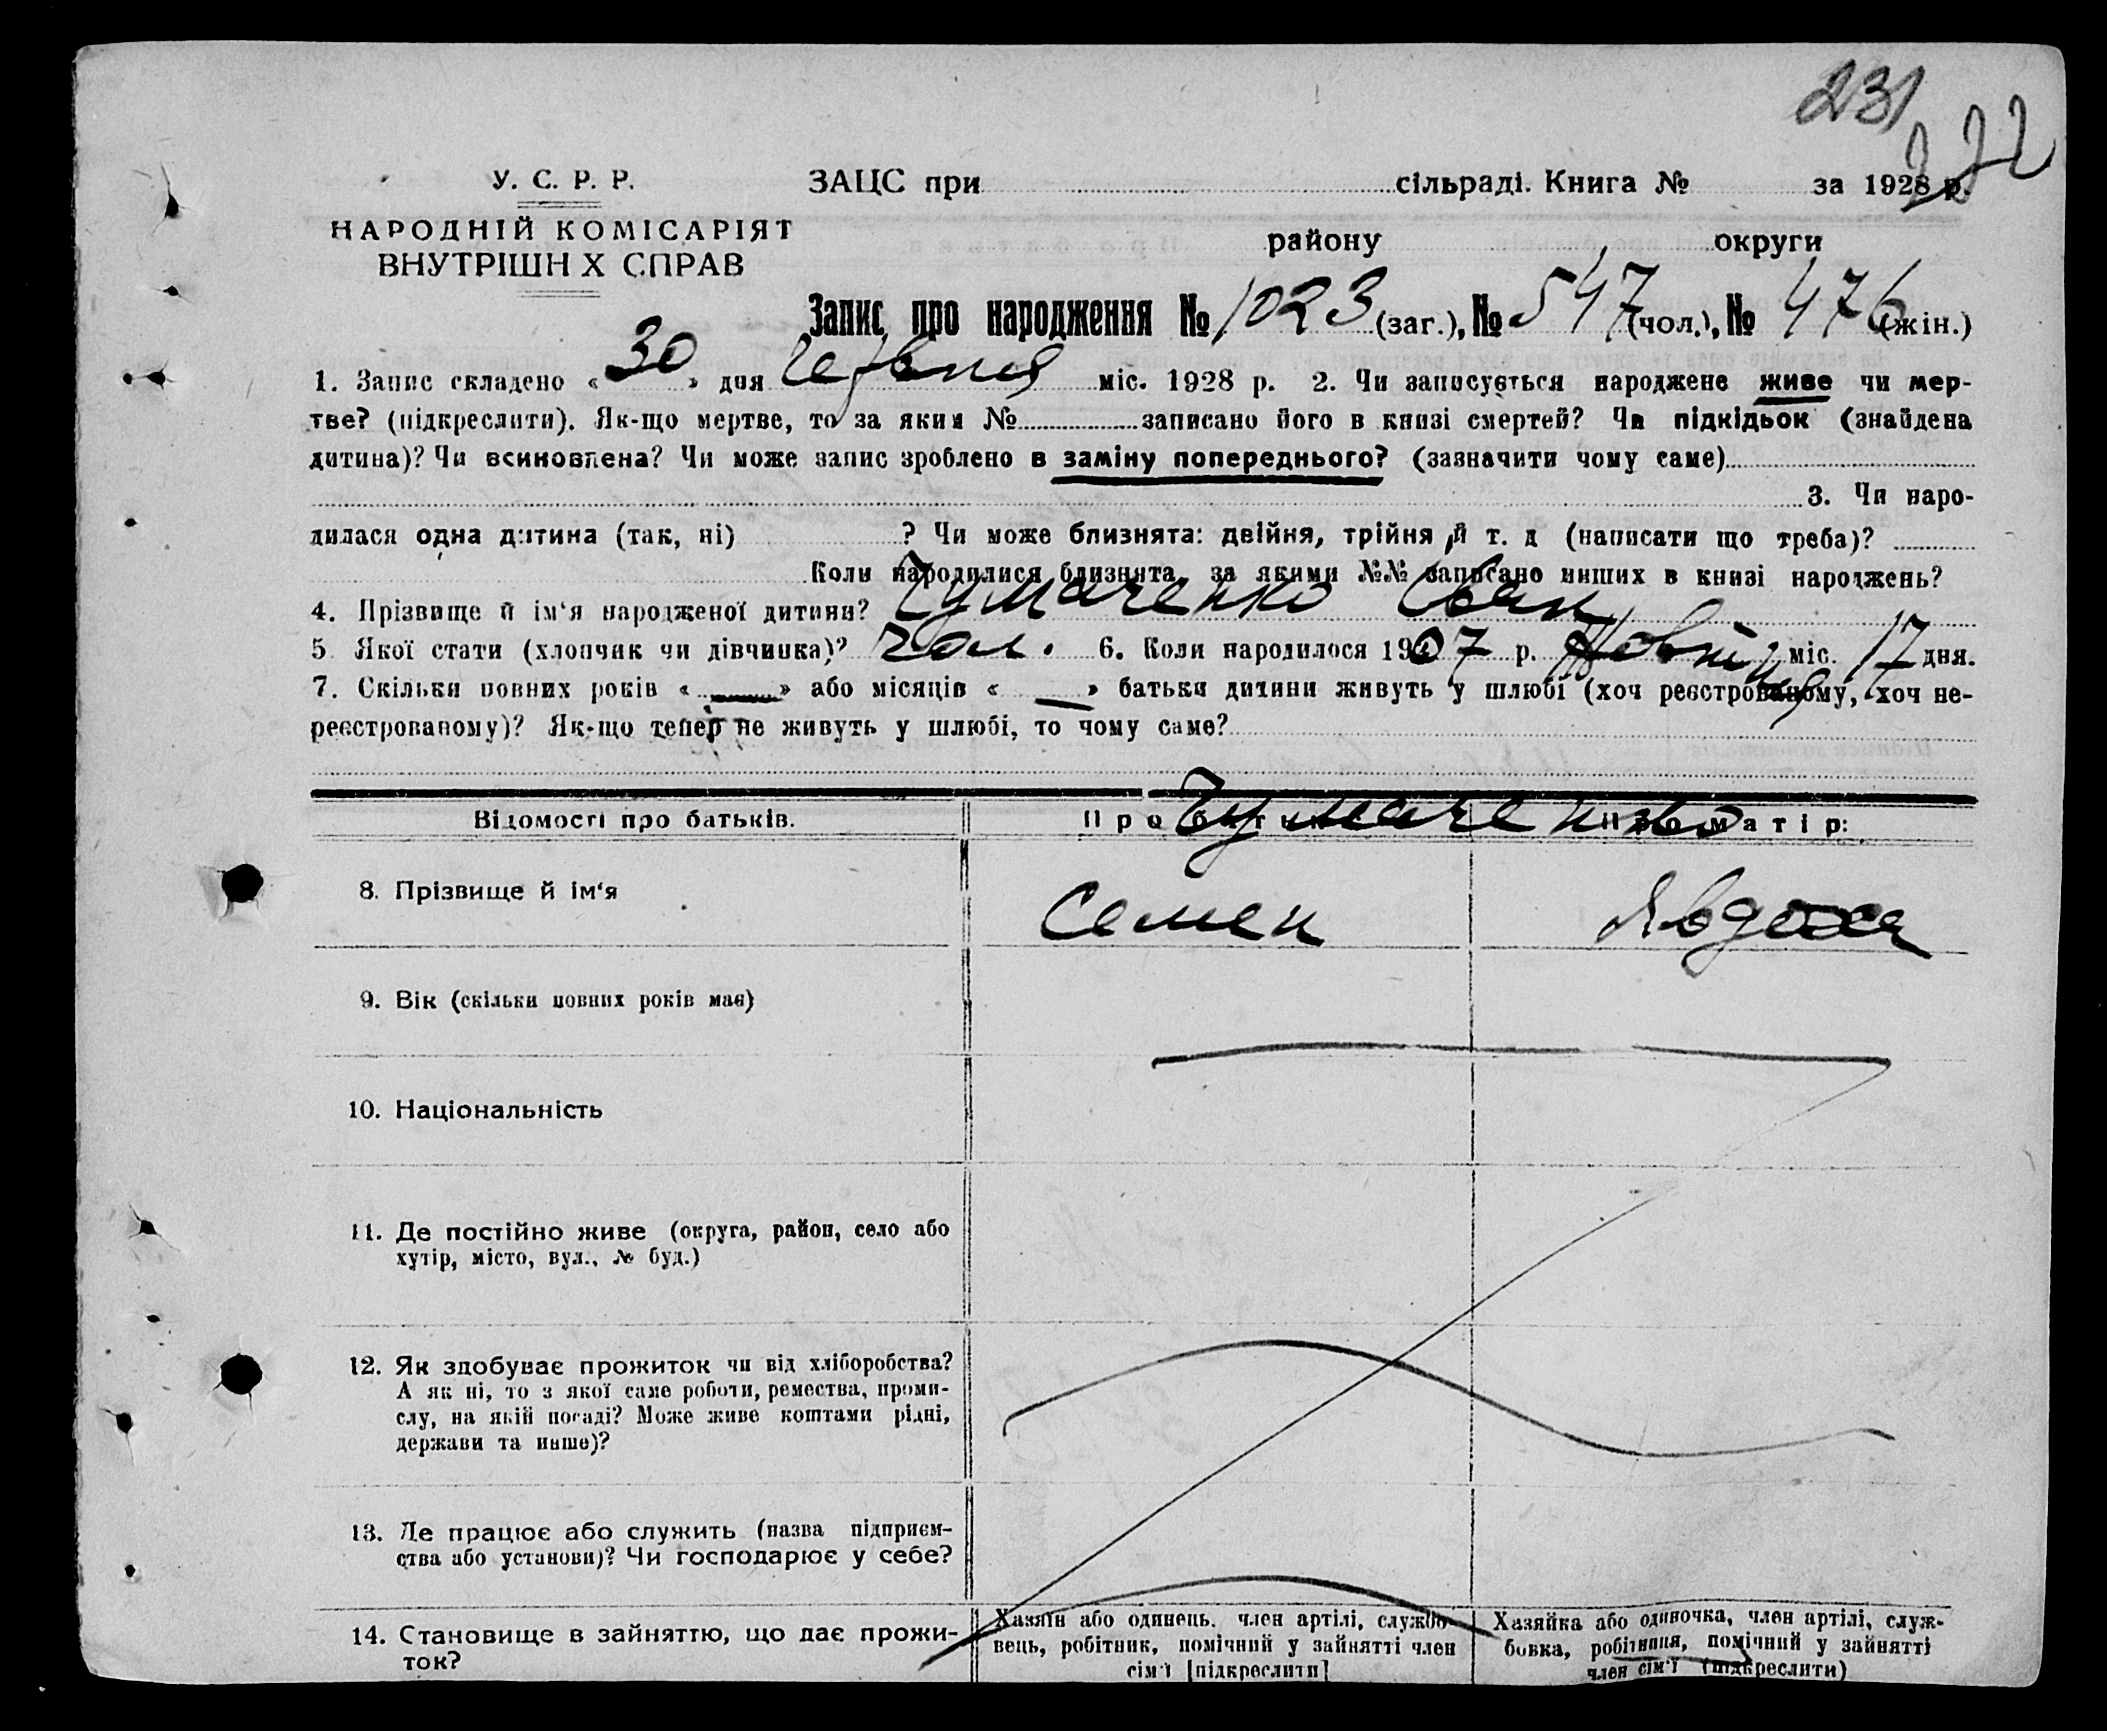 231
232
У. С. Р. Р. ЗАЦС при сільраді. Книга № за 1928 р.
НАРОДНІЙ КОМІСАРІЯТ
ВНУТРІШН Х СПРАВ
району округи
Запис про народження № 1023 (заг.), № 547 (чол.), № 476 (жін.)
1. Запис складено « 30 » дня червня міс. 1928 р. 2. Чи записується народжене живе чи мер-
тве? (підкреслити). Як-що мертве, то за яким № записано його в книзі смертей? Чи підкідьок (знайдена
дитина)? Чи всиновлена? Чи може запис зроблено в заміну попереднього? (зазначити чому саме)
3. Чи наро-
дилася одна дитина (так, ні) ? Чи може близнята: двійня, трійня й т. д (написати що треба)?
Коли народилися близнята, за якими №№ записано инших в книзі народжень?
4. Прізвище й ім‘я народженої дитини? Чумаченко Іван
5 Якої стати (хлопчик чи дівчинка)? чол. 6. Коли народилося 1907 р. Жовтня міс. 17 дня.
7. Скільки повних років « — » або місяців « — » батьки дитини живуть у шлюбі (хоч реєстрованому, хоч не-
реєстрованому)? Як-що тепер не живуть у шлюбі, то чому саме?
Чумаченко
Відомості про батьків. Про батька: Про матір:
8. Прізвище й ім‘я Семен Явдоха
9. Вік (скільки повних років має)
10. Національність
11. Де постійно живе (округа, район, село або
хутір, місто, вул., № буд.)
12. Як здобуває прожиток чи від хліборобства?
А як ні, то з якої саме роботи, ремества, проми-
слу, на якій посаді? Може живе коштами рідні,
держави та инше)?
13. Де працює або служить (назва підприєм-
ства або установи)? Чи господарює у себе?
14. Становище в зайняттю, що дає прожи-
ток?
Хазяїн або одинець, член артілі, службо-
вець, робітник, помічний у зайнятті член
сім‘ї [підкреслити]
Хазяйка або одиночка, член артілі, служ-
бовка, робітниця, помічний у зайнятті
член сім‘ї (підкреслити)